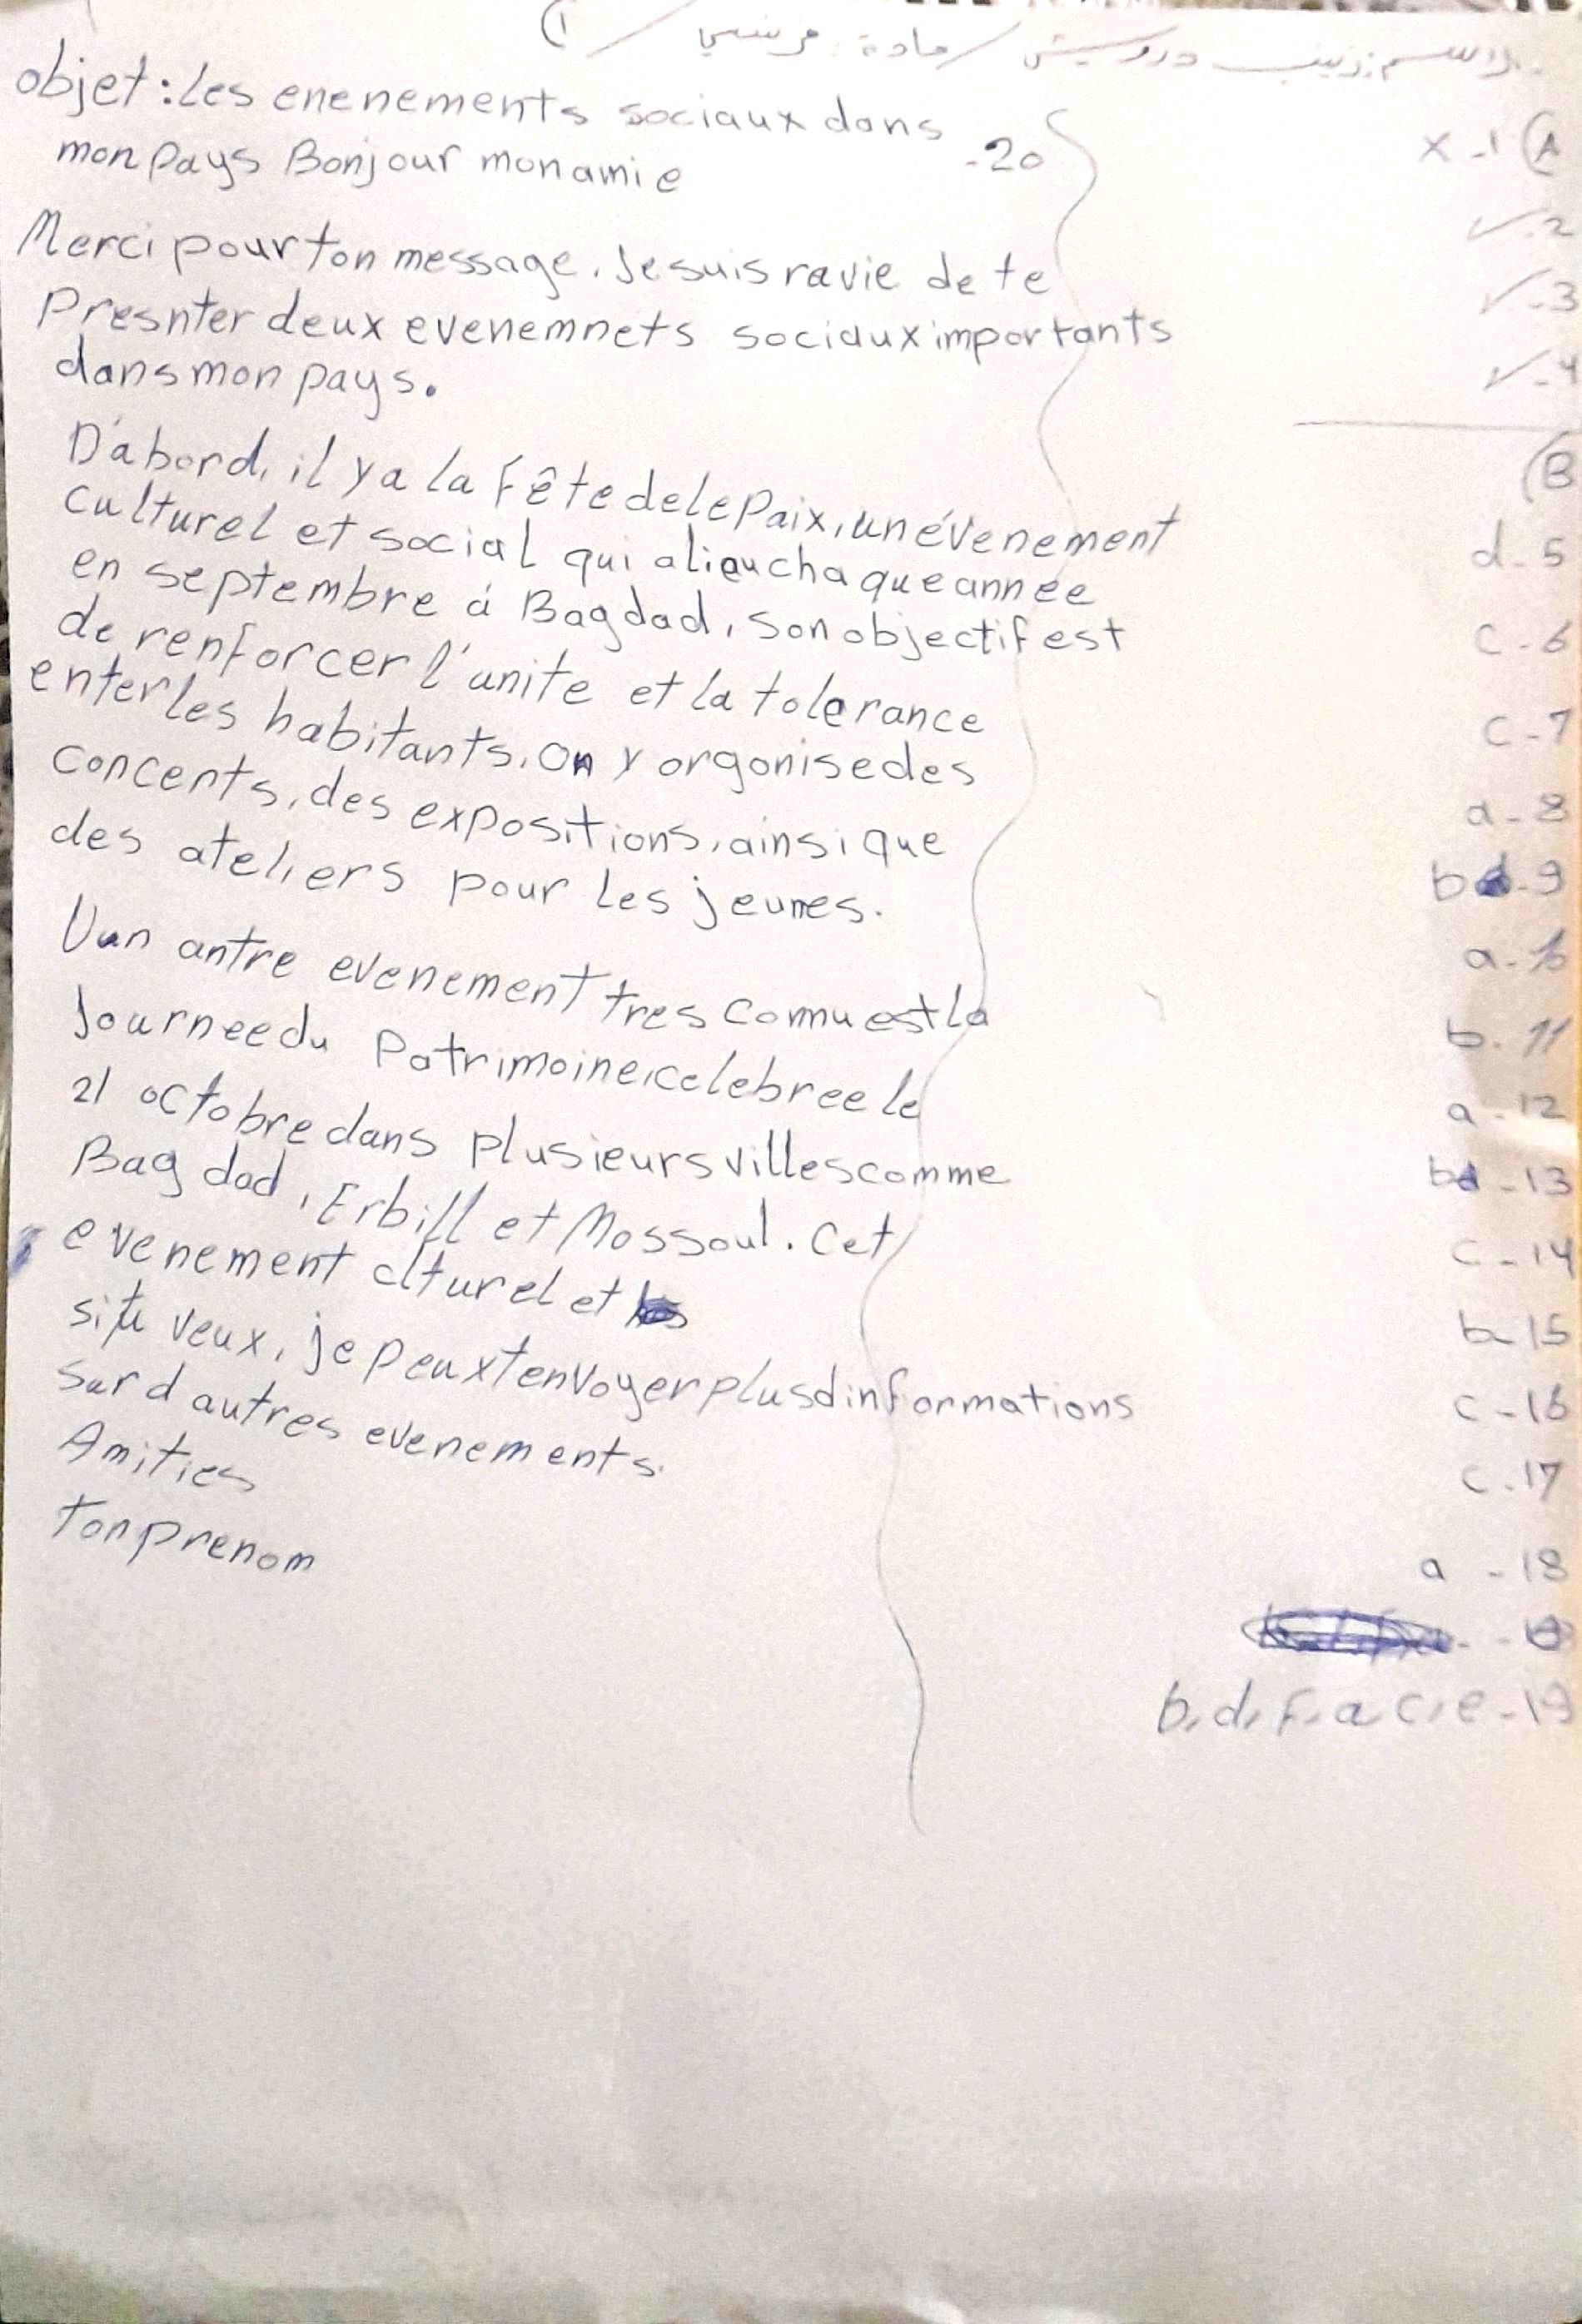 الاسم: زينب درويش / مادة: فرنسي / ①
A) 1- X
2- ✓
3- ✓
4- ✓
B)
5- d
6- c
7- c
8- a
9- b
10- a
11- b
12- a
13- b
14- c
15- b
16- c
17- c
18- a
19- b, d, F, a, c, e
20-
objet : les enenements sociaux dans
mon pays Bonjour mon amie
Merci pour ton message. Je suis ravie de te
Presnter deux evenemnets sociaux importants
dans mon pays.
D'abord, il y a la Fête de le Paix, un évenement
culturel et social qui a lieu chaque année
en septembre á Bagdad, son objectif est
de renforcer l'unite et la tolerance
enter les habitants. On y orgonise des
concents, des expositions, ainsi que
des ateliers pour les jeunes.
Uun antre evenement tres connu est la
Journee du Patrimoine, celebree le
21 octobre dans plusieurs villes comme
Bagdad, Erbill et Mossoul. Cet
evenement clturel et
si tu veux, je peux tenvoyer plus dinformations
sur d autres evenements.
Amities
Ton prenom